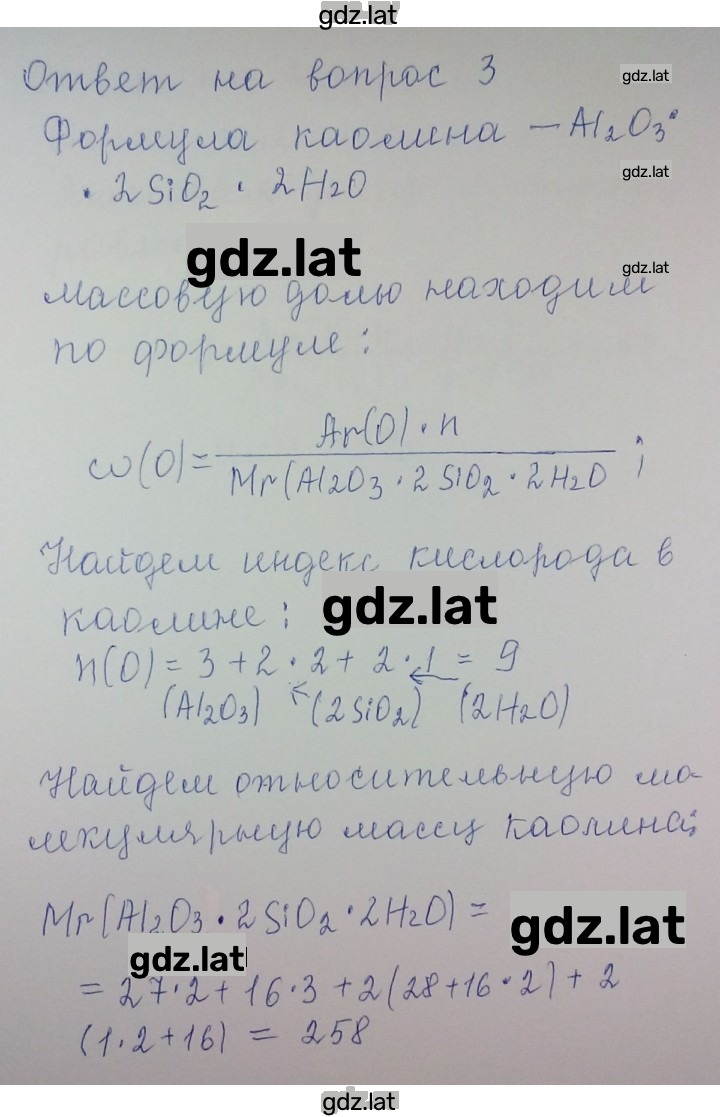 gdz.lat
Ответ на вопрос 3
gdz.lat
Формула каолина — Al₂O₃ ·
· 2SiO₂ · 2H₂O
gdz.lat
gdz.lat
gdz.lat
Массовую долю находим
по формуле:
ω(O) = Ar(O) · n / Mr(Al₂O₃ · 2SiO₂ · 2H₂O ;
Найдем индекс кислорода в
каолине:
gdz.lat
n(O) = 3 + 2 · 2 + 2 · 1 = 9
(Al₂O₃) (2SiO₂) (2H₂O)
Найдем относительную мо-
лекулярную массу каолина:
Mr(Al₂O₃ · 2SiO₂ · 2H₂O) =
gdz.lat
gdz.lat
= 27·2 + 16·3 + 2(28+16·2) + 2
(1·2+16) = 258
gdz.lat